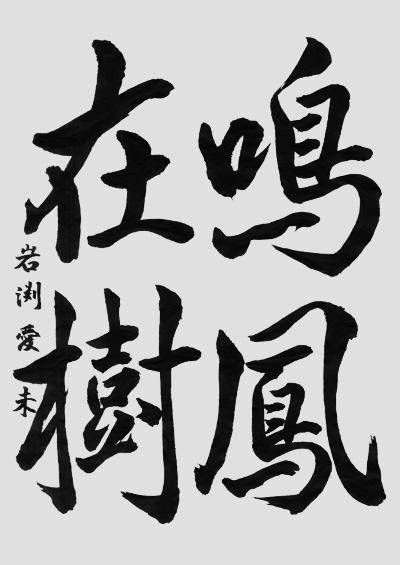 鳴鳳
在樹
岩渕愛未